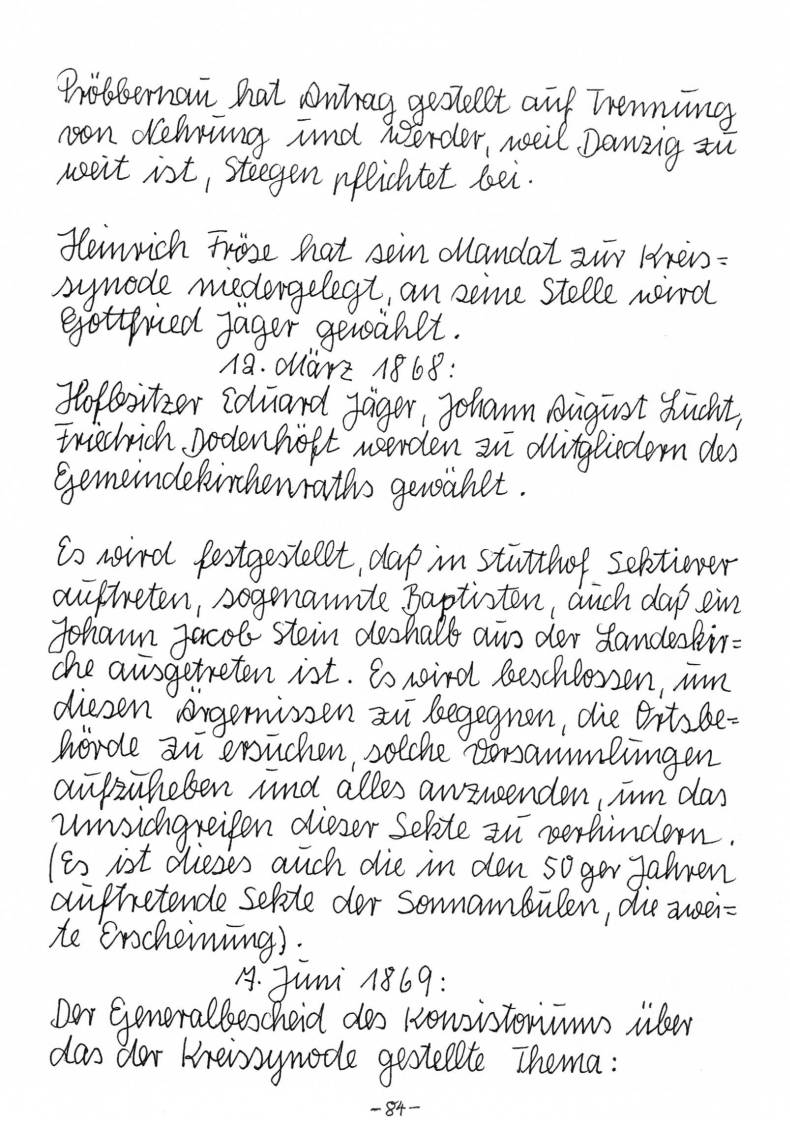 Pröbbernau hat Antrag gestellt auf Trennung
von Nehrung und Werder, weil Danzig zu
weit ist, Steegen pflichtet bei.
Heinrich Fröse hat sein Mandat zur Kreis=
synode niedergelegt, an seine Stelle wird
Gottfried Jäger gewählt.
12. März 1868:
Hofbsitzer Eduard Jäger, Johann August Lucht,
Friedrich Dodenhöft werden zu Mitgliedern des
Gemeindekirchenraths gewählt.
Es wird festgestellt, daß in Stutthof Sektierer
auftreten, sogenannte Baptisten, auch daß ein
Johann Jacob Stein deshalb aus der Landeskir=
che ausgetreten ist. Es wird beschlossen, um
diesen Ärgernissen zu begegnen, die Ortsbe=
hörde zu ersuchen, solche Versammlungen
aufzuheben und alles anzwenden, um das
Umsichgreifen dieser Sekte zu verhindern.
(Es ist dieses auch die in den 50ger Jahren
auftretende Sekte der Somnambulen, die zwei=
te Erscheinung).
7. Juni 1869:
Der Generalbescheid des Konsistoriums über
das der Kreissynode gestellte Thema:
-84-